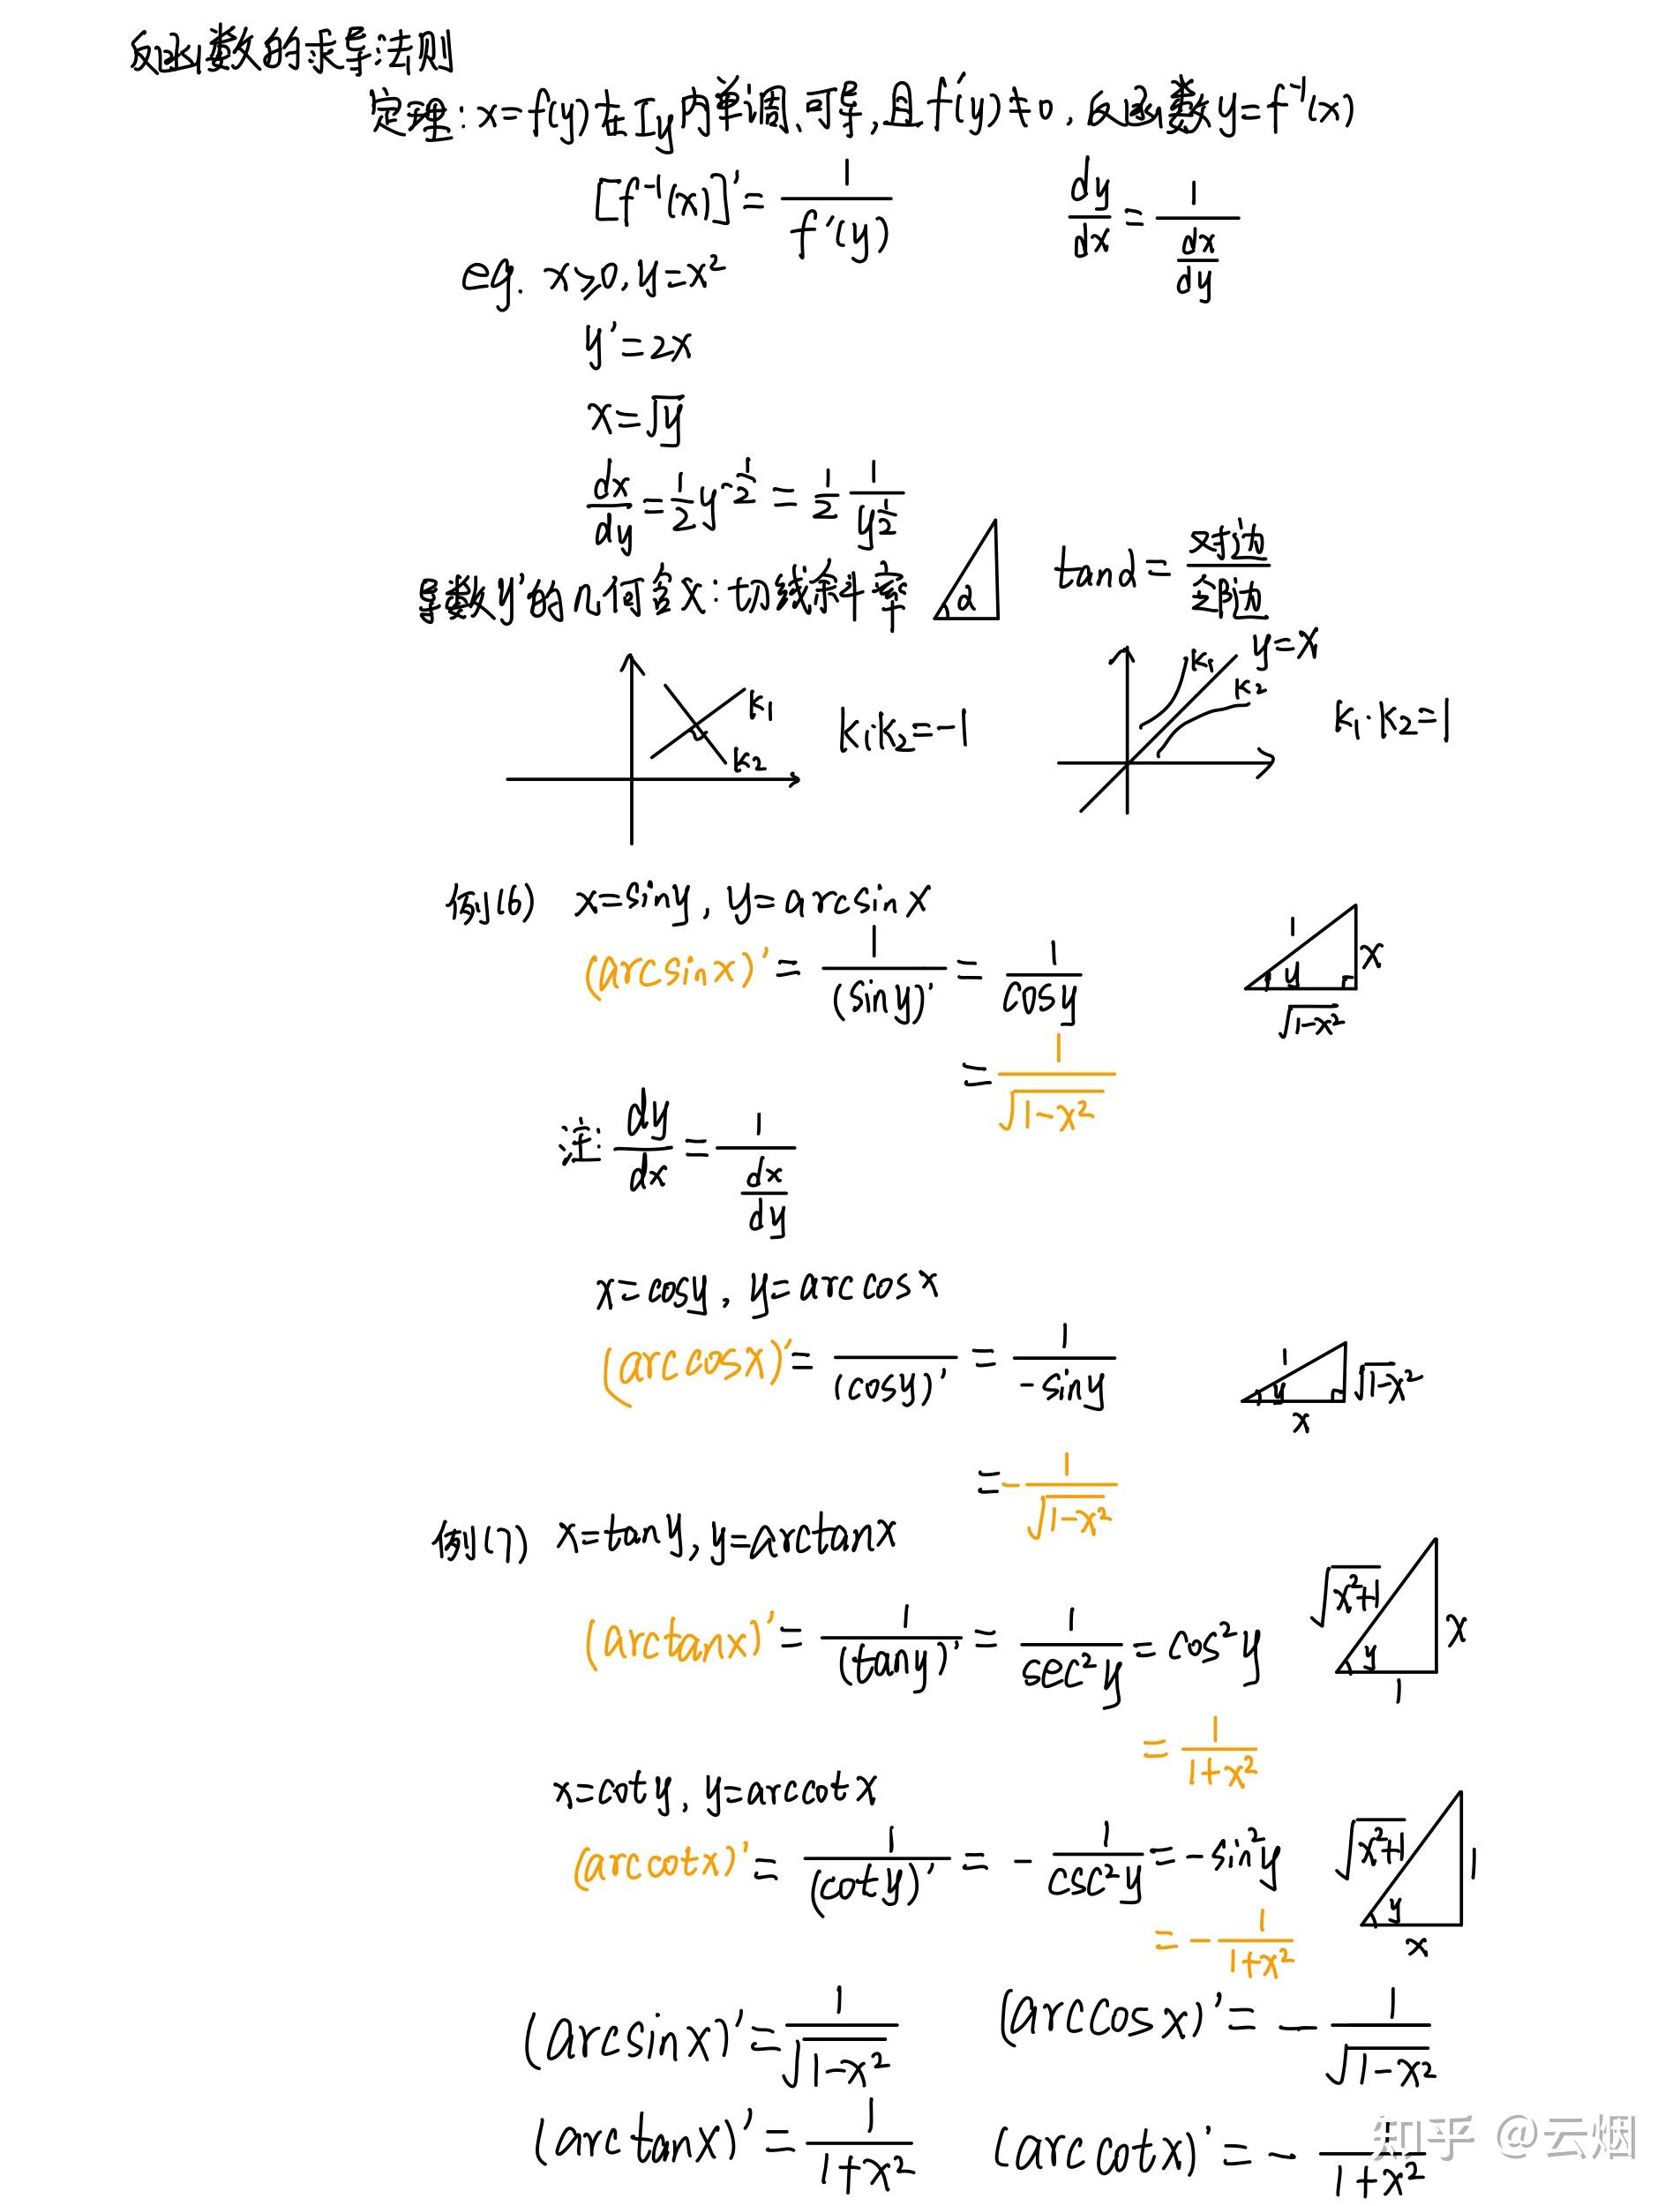 反函数的求导法则
定理: x=f(y)在I_y内单调、可导,且f'(y)≠0, 反函数y=f⁻¹(x)
[f⁻¹(x)]'=1/f'(y)    dy/dx=1/(dx/dy)
eg. x≥0, y=x²
y'=2x
x=√y
dx/dy=1/2 y^(-1/2)=1/2 1/y^(1/2)
导数y'的几何含义:切线斜率    α    tanα=对边/邻边
k₁ k₂ k₁·k₂=-1    k₁ y=x k₂ k₁·k₂=1
例(6) x=siny, y=arcsinx
(arcsinx)'=1/(siny)'=1/cosy    1 x y √(1-x²)
=1/√(1-x²)
注: dy/dx=1/(dx/dy)
x=cosy, y=arccosx
(arccosx)'= /(cosy)'=1/-siny    1 √(1-x²) y x
=-1/√(1-x²)
例(7) x=tany, y=arctanx
(arctanx)'=1/(tany)'=1/sec²y=cos²y    √(x²+1) x y 1
=1/(1+x²)
x=coty, y=arccotx
(arccotx)'=1/(coty)'=-1/csc²y=-sin²y    √(x²+1) 1 y x
=-1/(1+x²)
(arcsinx)'=1/√(1-x²)    (arccosx)'=-1/√(1-x²)
(arctanx)'=1/(1+x²)    (arccotx)'=-1/(1+x²)
知乎 @云烟